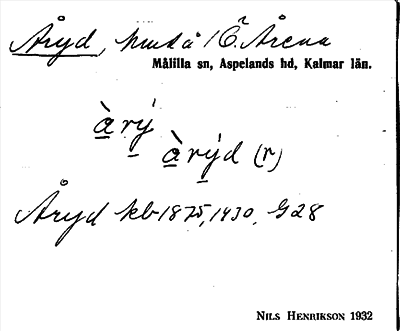 Åryd, hmd å 1 Ö. Årena
Målilla sn, Aspelands hd, Kalmar län.
àrý
àrýd (r)
Åryd kb 1875, 1930, G28
NILS HENRIKSON 1932